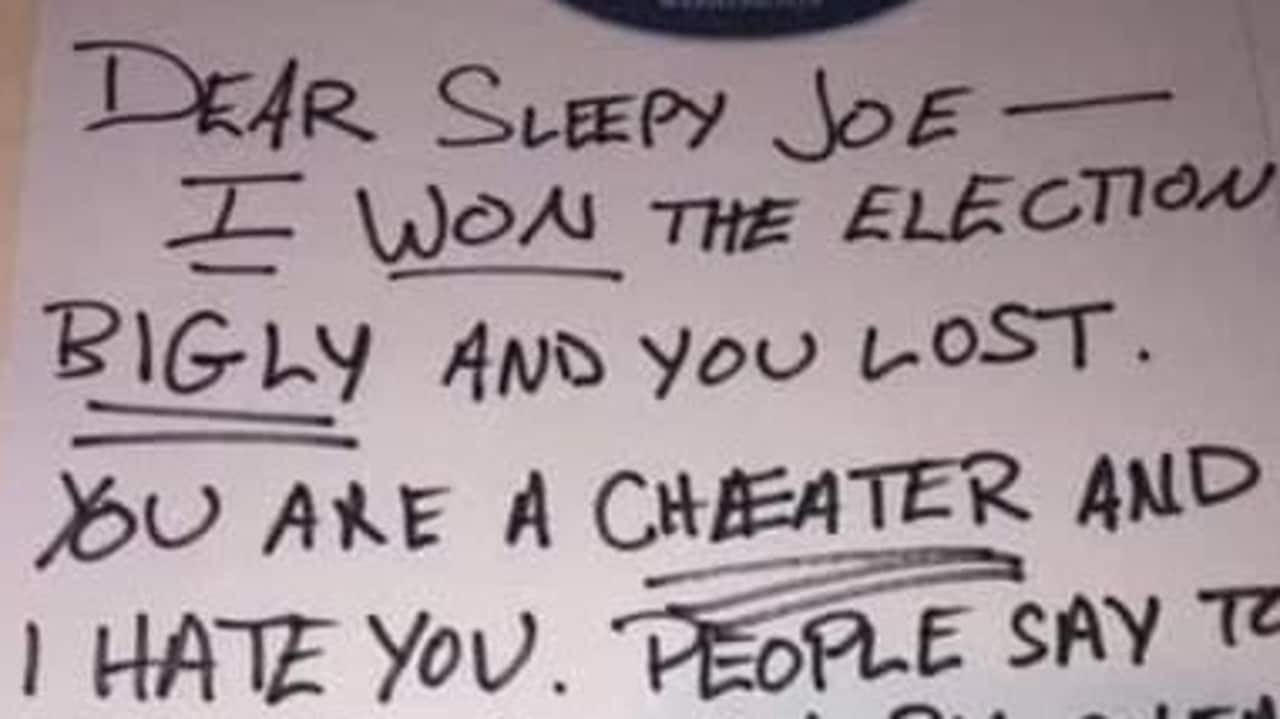 DEAR SLEEPY JOE —
I WON THE ELECTION
BIGLY AND YOU LOST.
YOU ARE A CHEATER AND
I HATE YOU. PEOPLE SAY TO